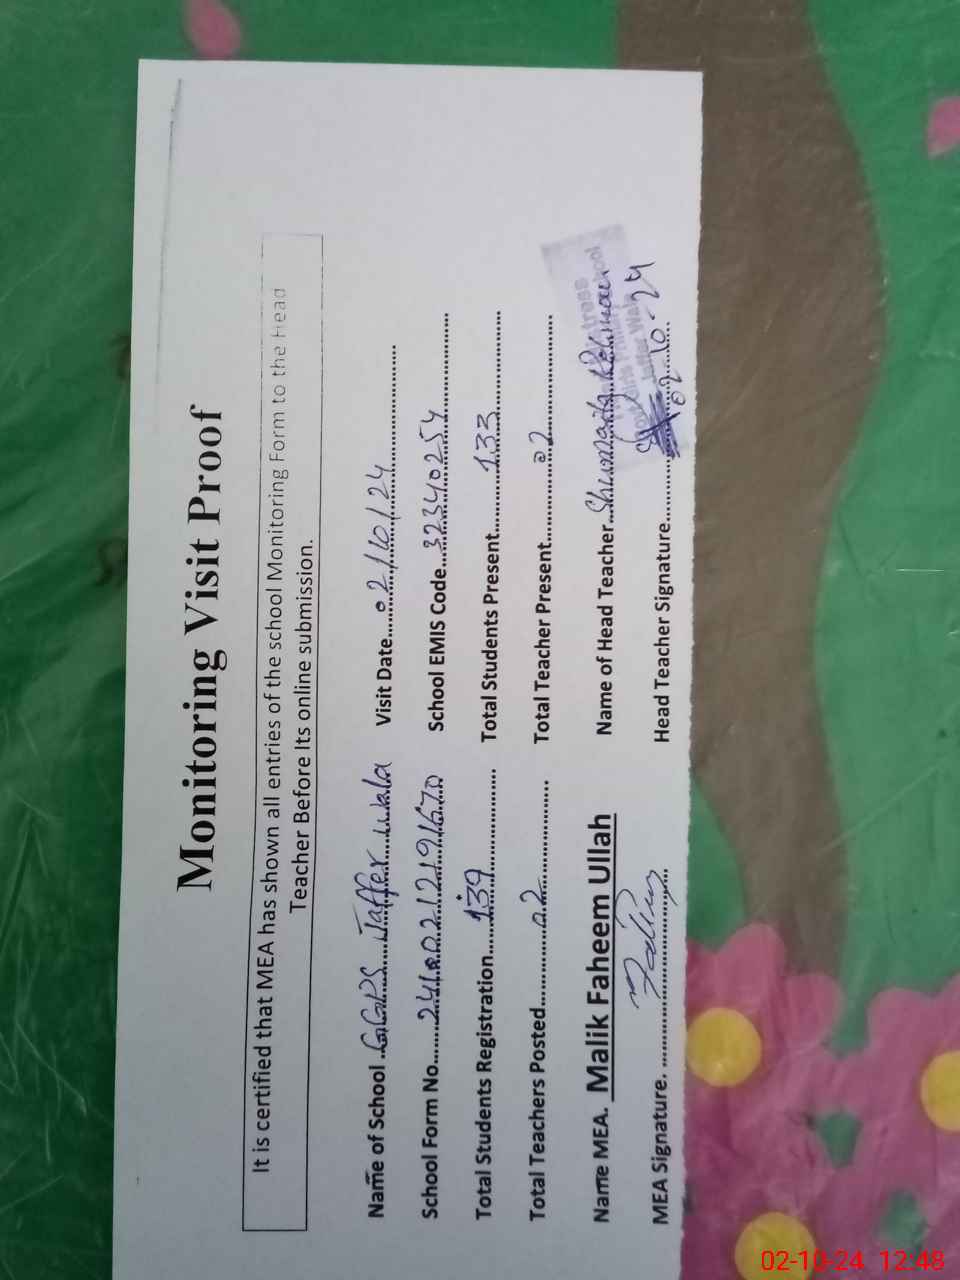 Monitoring Visit Proof
It is certified that MEA has shown all entries of the school Monitoring Form to the Head
Teacher Before Its online submission.
Name of School ..GGPS Jaffer wala Visit Date......02/10/24
School Form No......24100212191670 School EMIS Code...32340254
Total Students Registration......139 Total Students Present......133
Total Teachers Posted......02 Total Teacher Present......02
Name MEA. Malik Faheem Ullah Name of Head Teacher...Shumaila Rehman
MEA Signature. Head Teacher Signature......02-10-24
Jaffer Wala
02-10-24 12:48